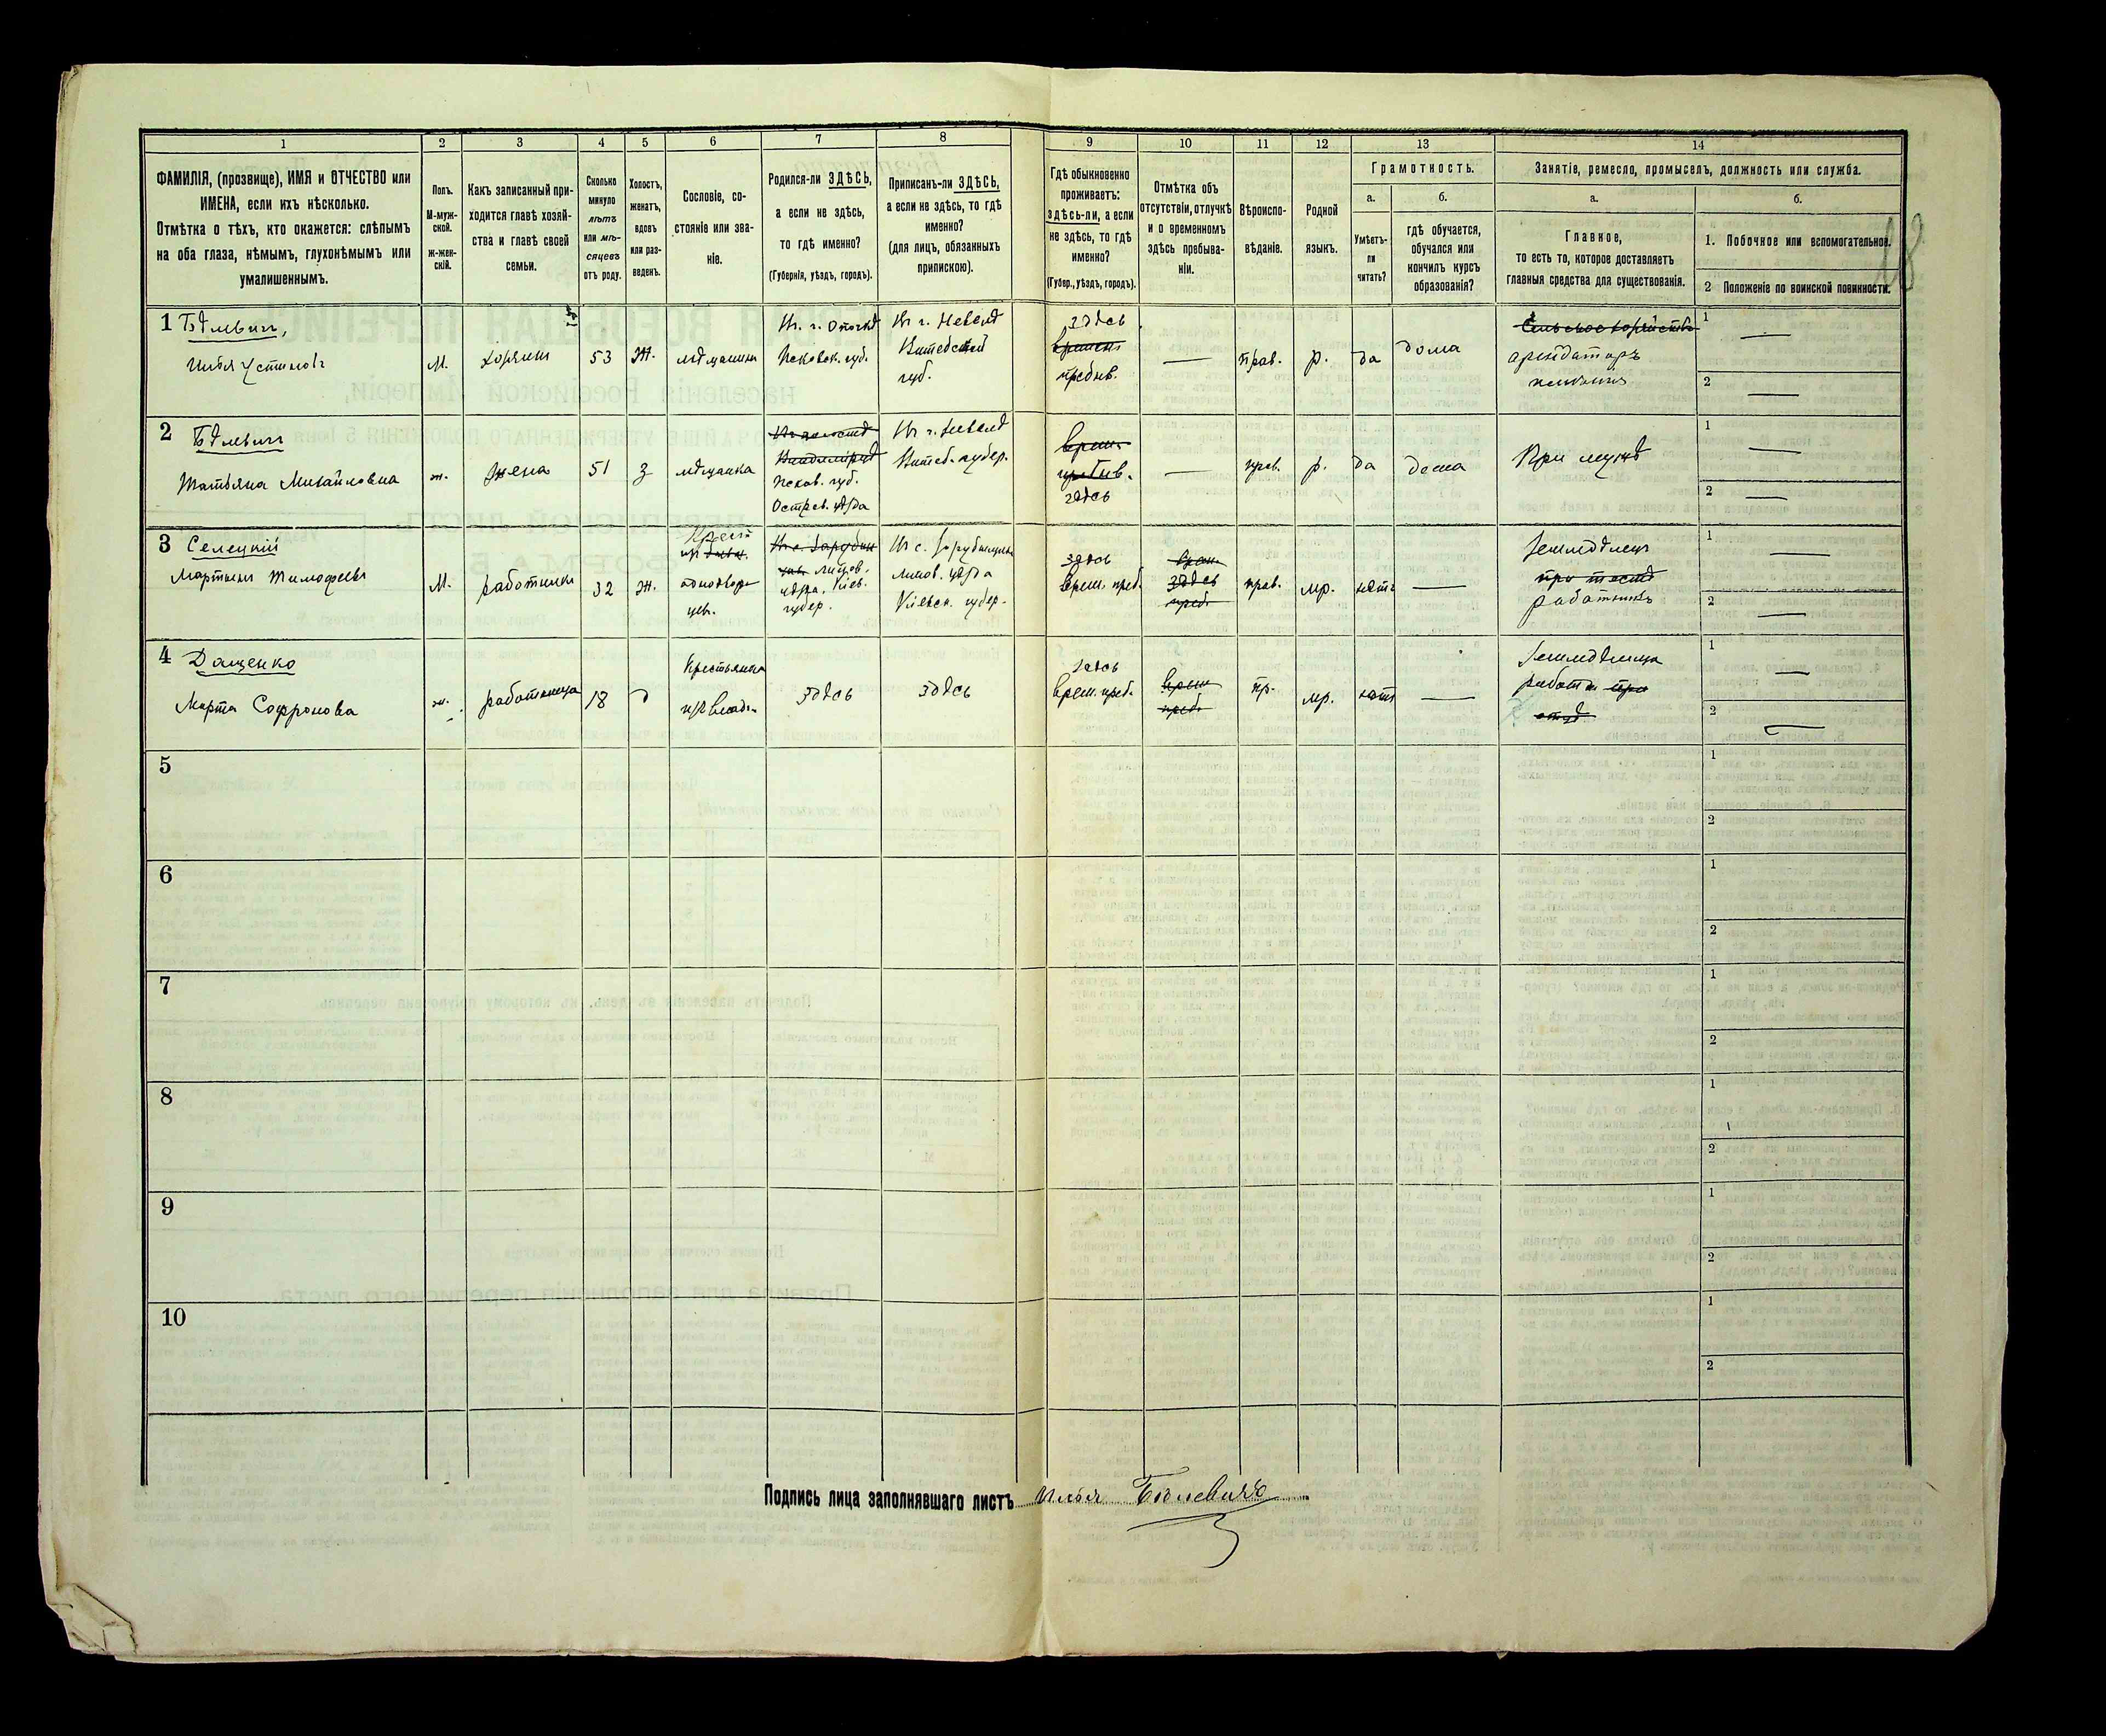 1 2 3 4 5 6 7 8 9 10 11 12 13 14
ФАМИЛІЯ, (прозвище), ИМЯ и ОТЧЕСТВО или
ИМЕНА, если ихъ нѣсколько.
Отмѣтка о тѣхъ, кто окажется: слѣпымъ
на оба глаза, нѣмымъ, глухонѣмымъ или
умалишеннымъ.
Полъ.
М-муж-
ской.
ж-жен-
скій.
Какъ записанный при-
ходится главѣ хозяй-
ства и главѣ своей
семьи.
Сколько
минуло
лѣтъ
или мѣ-
сяцевъ
отъ роду.
Холостъ,
женатъ,
вдовъ
или раз-
веденъ.
Сословіе, со-
стояніе или зва-
ніе.
Родился-ли ЗДѢСЬ,
а если не здѣсь,
то гдѣ именно?
(Губернія, уѣздъ, городъ).
Приписанъ-ли ЗДѢСЬ,
а если не здѣсь, то гдѣ
именно?
(для лицъ, обязанныхъ
припискою).
Гдѣ обыкновенно
проживаетъ:
здѣсь-ли, а если
не здѣсь, то гдѣ
именно?
(Губер., уѣздъ, городъ).
Отмѣтка объ
отсутствіи, отлучкѣ
и о временномъ
здѣсь пребыва-
ніи.
Вѣроиспо-
вѣданіе.
Родной
языкъ.
Грамотность.
а.
Умѣетъ-
ли
читать?
б.
гдѣ обучается,
обучался или
кончилъ курсъ
образованія?
Занятіе, ремесло, промыселъ, должность или служба.
а.
Главное,
то есть то, которое доставляетъ
главныя средства для существованія.
б.
1. Побочное или вспомогательное.
2 Положеніе по воинской повинности.
18
1
Илья Устиновъ
М.
хозяинъ
53
Ж.
мѣщанинъ
Псковск. губ.
Въ г. Невелѣ
Витебской
губ.
здѣсь
—
прав.
р.
да
дома
арендаторъ
1 —
2 —
2
Татьяна Михайловна
ж.
жена
51
з
мѣщанка
Псков. губ.
Остров. уѣзда
Въ г. Невелѣ
Витеб. губер.
здѣсь
—
прав.
р.
да
дома
При мужѣ
1 —
2 —
3 Селецкій
Мартынъ Тимофеевъ
М.
работникъ
32
Ж.
однодвор-
Липов.
уѣзда, Кіев.
губер.
Липов. уѣзда
Кіевск. губер.
здѣсь
врем. преб.
здѣсь
прав.
мр.
нѣтъ
—
земледѣлецъ
работникъ
1 —
2 —
4 Даценко
Марта Софронова
ж.
работница
18
д
Крестьянка
здѣсь
здѣсь
здѣсь
врем. преб.
пр.
мр.
нѣтъ
—
1 —
2 —
5
1
2
6
1
2
7
1
2
8
1
2
9
1
2
10
1
2
Подпись лица заполнявшаго листъ Илья